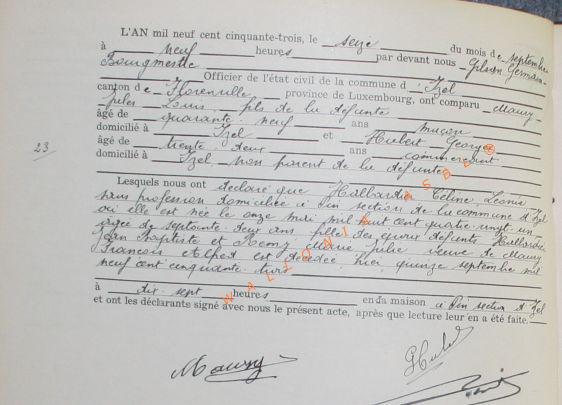 L'AN mil neuf cent cinquante-trois, le seize du mois de septembre
à neuf heures par devant nous Gilson Germain
Bourgmestre Officier de l'état civil de la commune d'Izel
canton de Florenville province de Luxembourg, ont comparu Maury
Jules Louis, fils de la défunte
âgé de quarante neuf ans maçon
domicilié à Izel et Hubert Georges
23 âgé de trente deux ans commerçant
domicilié à Izel, non parent de la défunte
Lesquels nous ont déclaré que Hallardin Céline Léonie
sans profession domiciliée à Pin section de la commune d'Izel
où elle est née le onze mai mil huit cent quatre vingt un
âgée de septante deux ans, fille des époux défunts Hallardin
Jean Baptiste et Remy Marie Julie veuve de Maury
François Alfred est décédée hier, quinze septembre mil
neuf cent cinquante trois
à dix sept heures en sa maison à Pin section d'Izel
et ont les déclarants signé avec nous le présent acte, après que lecture leur en a été faite.
Maury
GHubert